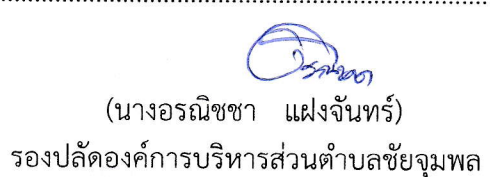 (นางอรณิชชา แฝงจันทร์)
รองปลัดองค์การบริหารส่วนตำบลชัยจุมพล